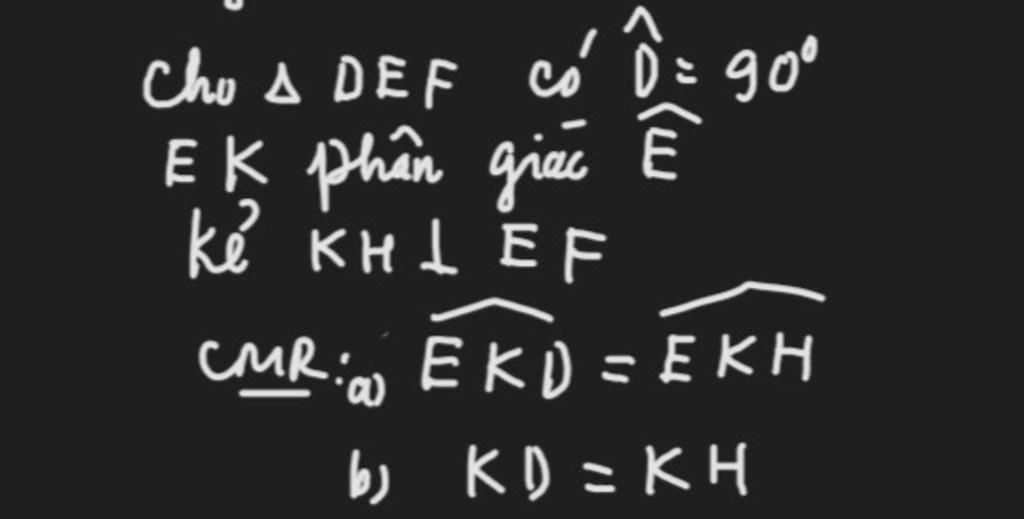 Cho Δ DEF có D̂ = 90°
EK phân giác Ê
kẻ KH ⊥ EF
CMR: a) \widehat{EKD} = \widehat{EKH}
b) KD = KH